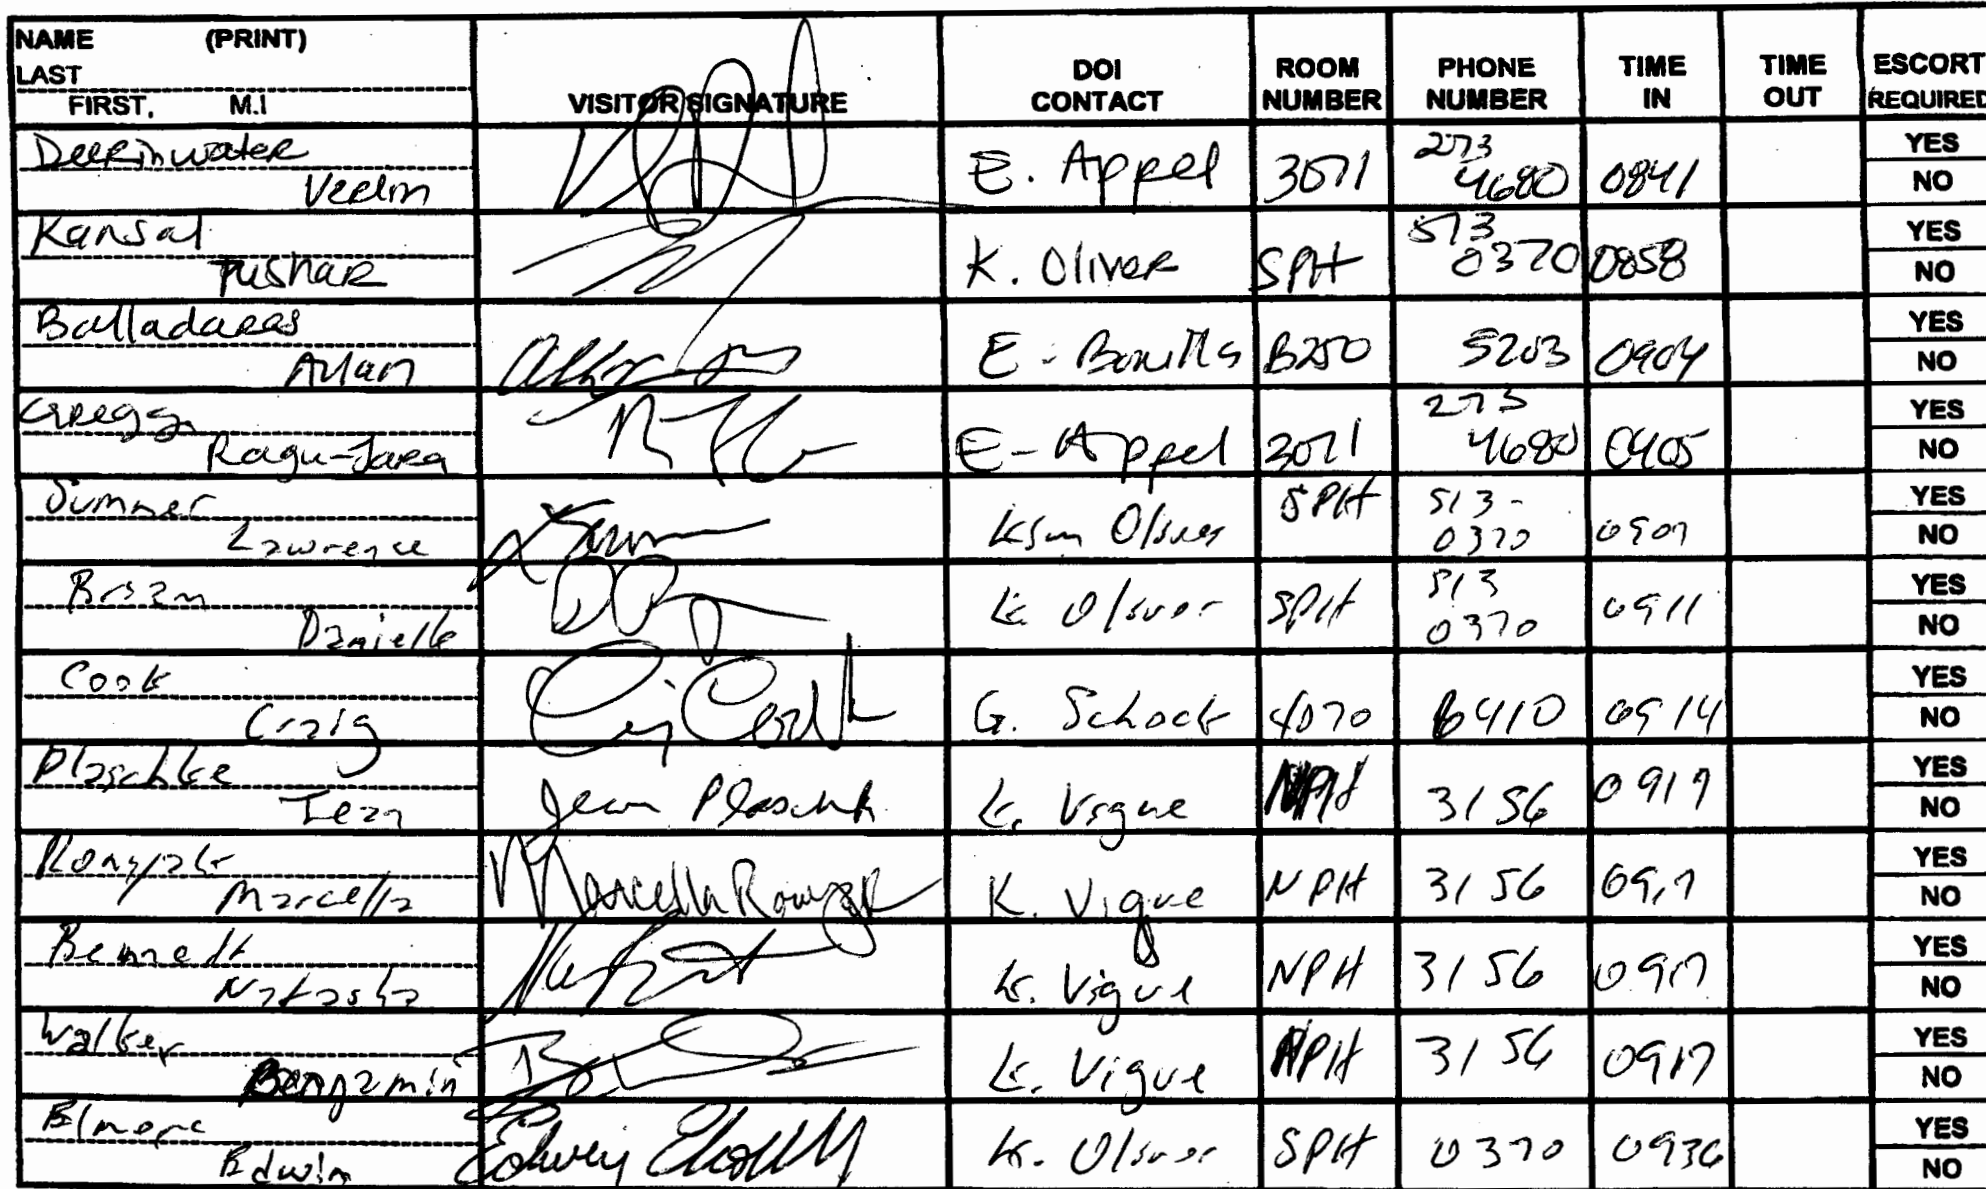 NAME (PRINT)
LAST
FIRST, M.I
VISITOR SIGNATURE
DOI CONTACT
ROOM NUMBER
PHONE NUMBER
TIME IN
TIME OUT
ESCORT REQUIRED
Deerinwater
Verlin
E. Appel 3071 273 4680 0841 YES NO
Kansal
Tushar
K. Oliver SPH 513 0370 0858 YES NO
Balladares
Allan
E - Bonilla B250 5203 0904 YES NO
Gregg
E - Appel 3071 273 4680 0905 YES NO
Sumner
Lawrence
Kim Oliver SPH 513 - 0370 0907 YES NO
Danielle
K. Oliver SPH 513 0370 0911 YES NO
Cook
Craig
G. Schock 4070 6410 0914 YES NO
Plaschke
Jean
Jean Plaschk
K. Vigue NPH 3156 0917 YES NO
Marcella
Marcella
K. Vigue NPH 3156 0917 YES NO
Bennett
Natasha
K. Vigue NPH 3156 0917 YES NO
Walker
Benjamin
K. Vigue NPH 3156 0917 YES NO
Edwin
Edwin
K. Oliver SPH 0370 0936 YES NO